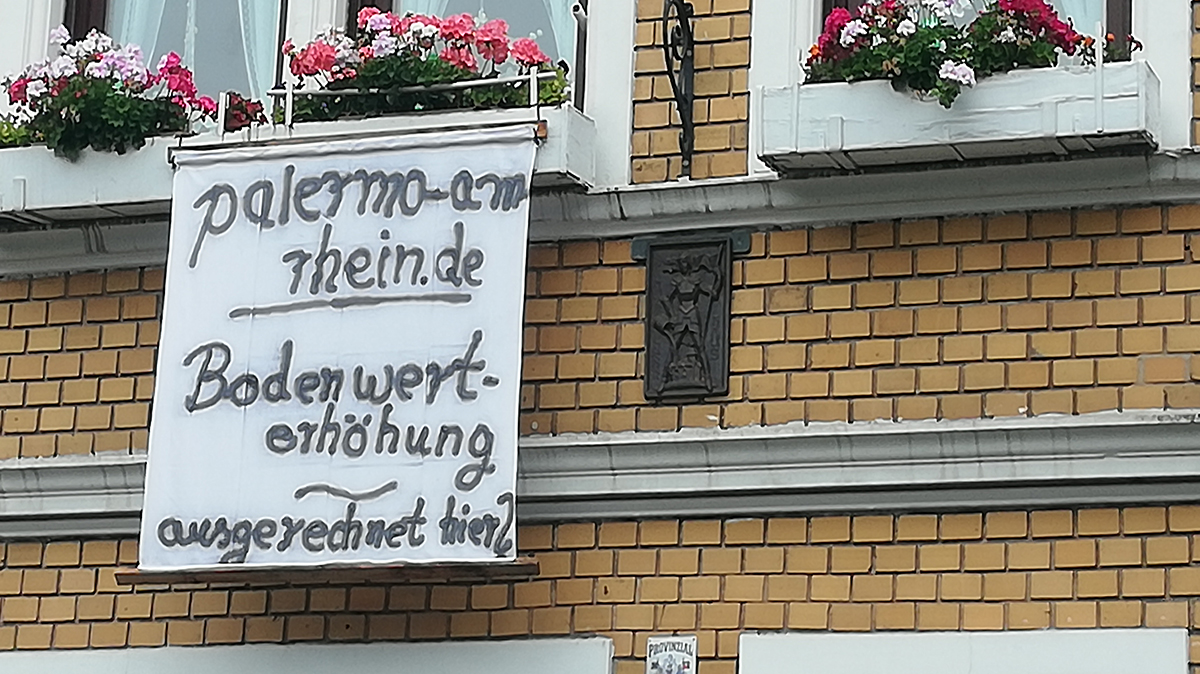 palermo-am
rhein.de
Bodenwert-
erhöhung
ausgerechnet hier?
PROVINZIAL